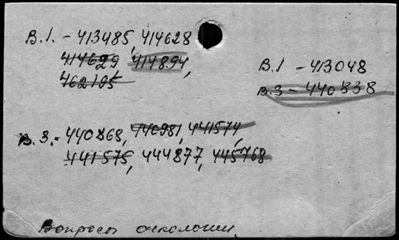 В.1. - 413485, 414628
414629 414894,
462105
В.1 - 413048
В.3 - 440838
В.3. - 440868, 440981, 441574,
441575, 444877, 445768
Вопросы онкологии.